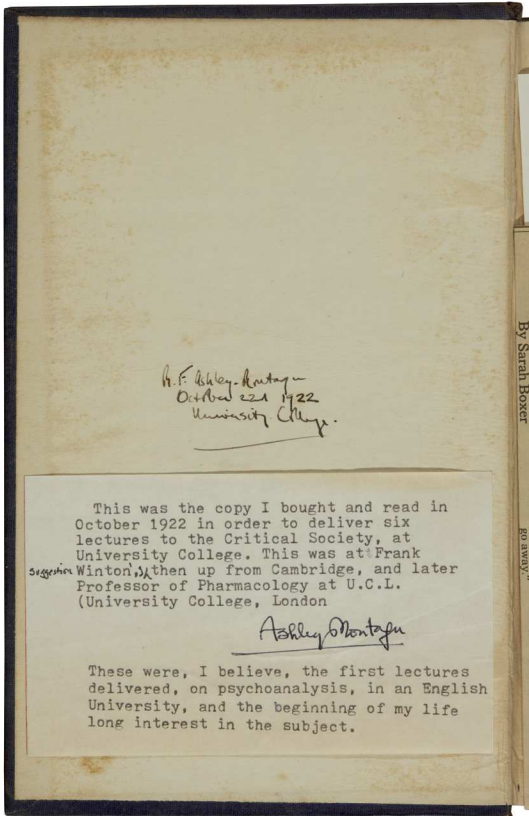 M. F. Ashley-Montagu
October 22d 1922
University College.
This was the copy I bought and read in
October 1922 in order to deliver six
lectures to the Critical Society, at
University College. This was at Frank
suggestion Winton's, then up from Cambridge, and later
Professor of Pharmacology at U.C.L.
(University College, London
Ashley Montagu
These were, I believe, the first lectures
delivered, on psychoanalysis, in an English
University, and the beginning of my life
long interest in the subject.
By Sarah Boxer
go away."